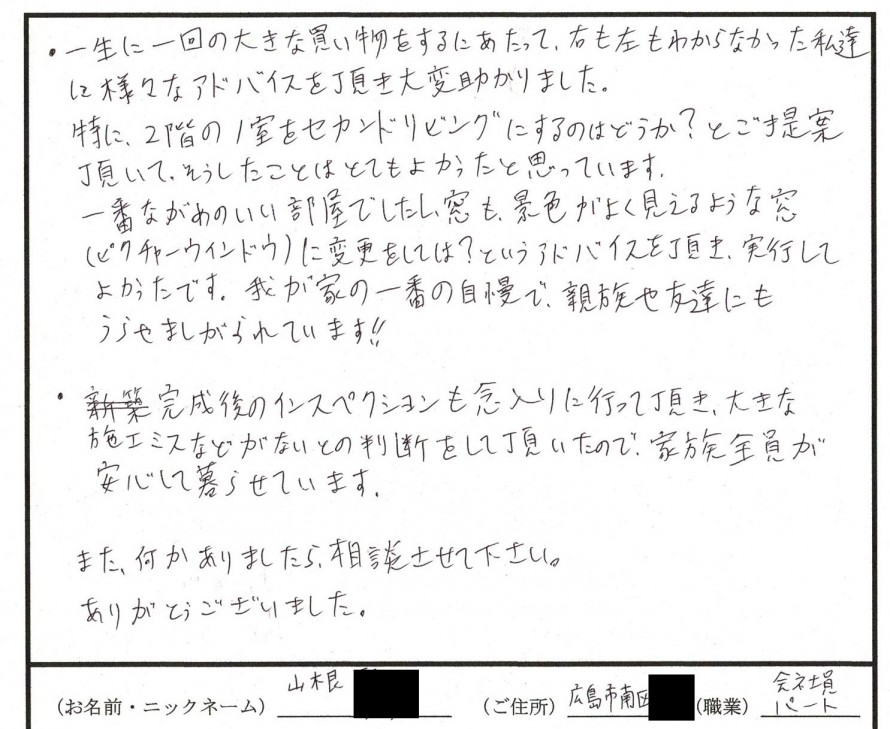 ・一生に一回の大きな買い物をするにあたって、右も左もわからなかった私達
に様々なアドバイスを頂き大変助かりました。
特に、2階の1室をセカンドリビングにするのはどうか?とご提案
頂いて、そうしたことはとてもよかったと思っています。
一番ながめのいい部屋でしたし、窓も、景色がよく見えるような窓
(ピクチャーウインドウ)に変更をしては?というアドバイスを頂き、実行して
よかったです。我が家の一番の自慢で、親族や友達にも
うらやましがられています!!
・新築完成後のインスペクションも念入りに行って頂き、大きな
施工ミスなどがないとの判断をして頂いたので、家族全員が
安心して暮らせています。
また、何かありましたら、相談させて下さい。
ありがとうございました。
(お名前・ニックネーム) 山根 (ご住所) 広島市南区 (職業) 会社員
パート